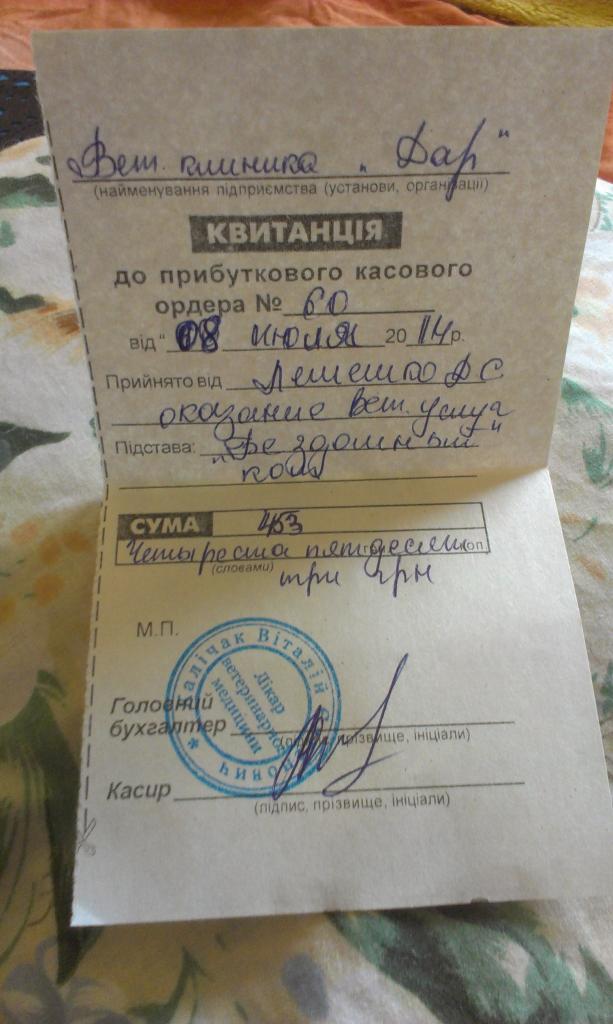 Вет. клиника "Дар"
(найменування підприємства (установи, організації)
КВИТАНЦІЯ
до прибуткового касового
ордера № 60
від " 08 июля 2014р.
Прийнято від Лешешко Д С
оказание вет. услуг
Підстава: "Бездомный
кот"
СУМА 453
Четыреста пятдесят коп
(словами) три грн
М.П.
Калічак Віталій
Лікар
ветеринарної
медицини
Головний
бухгалтер
прізвище, ініціали)
Касир
(підпис, прізвище, ініціали)